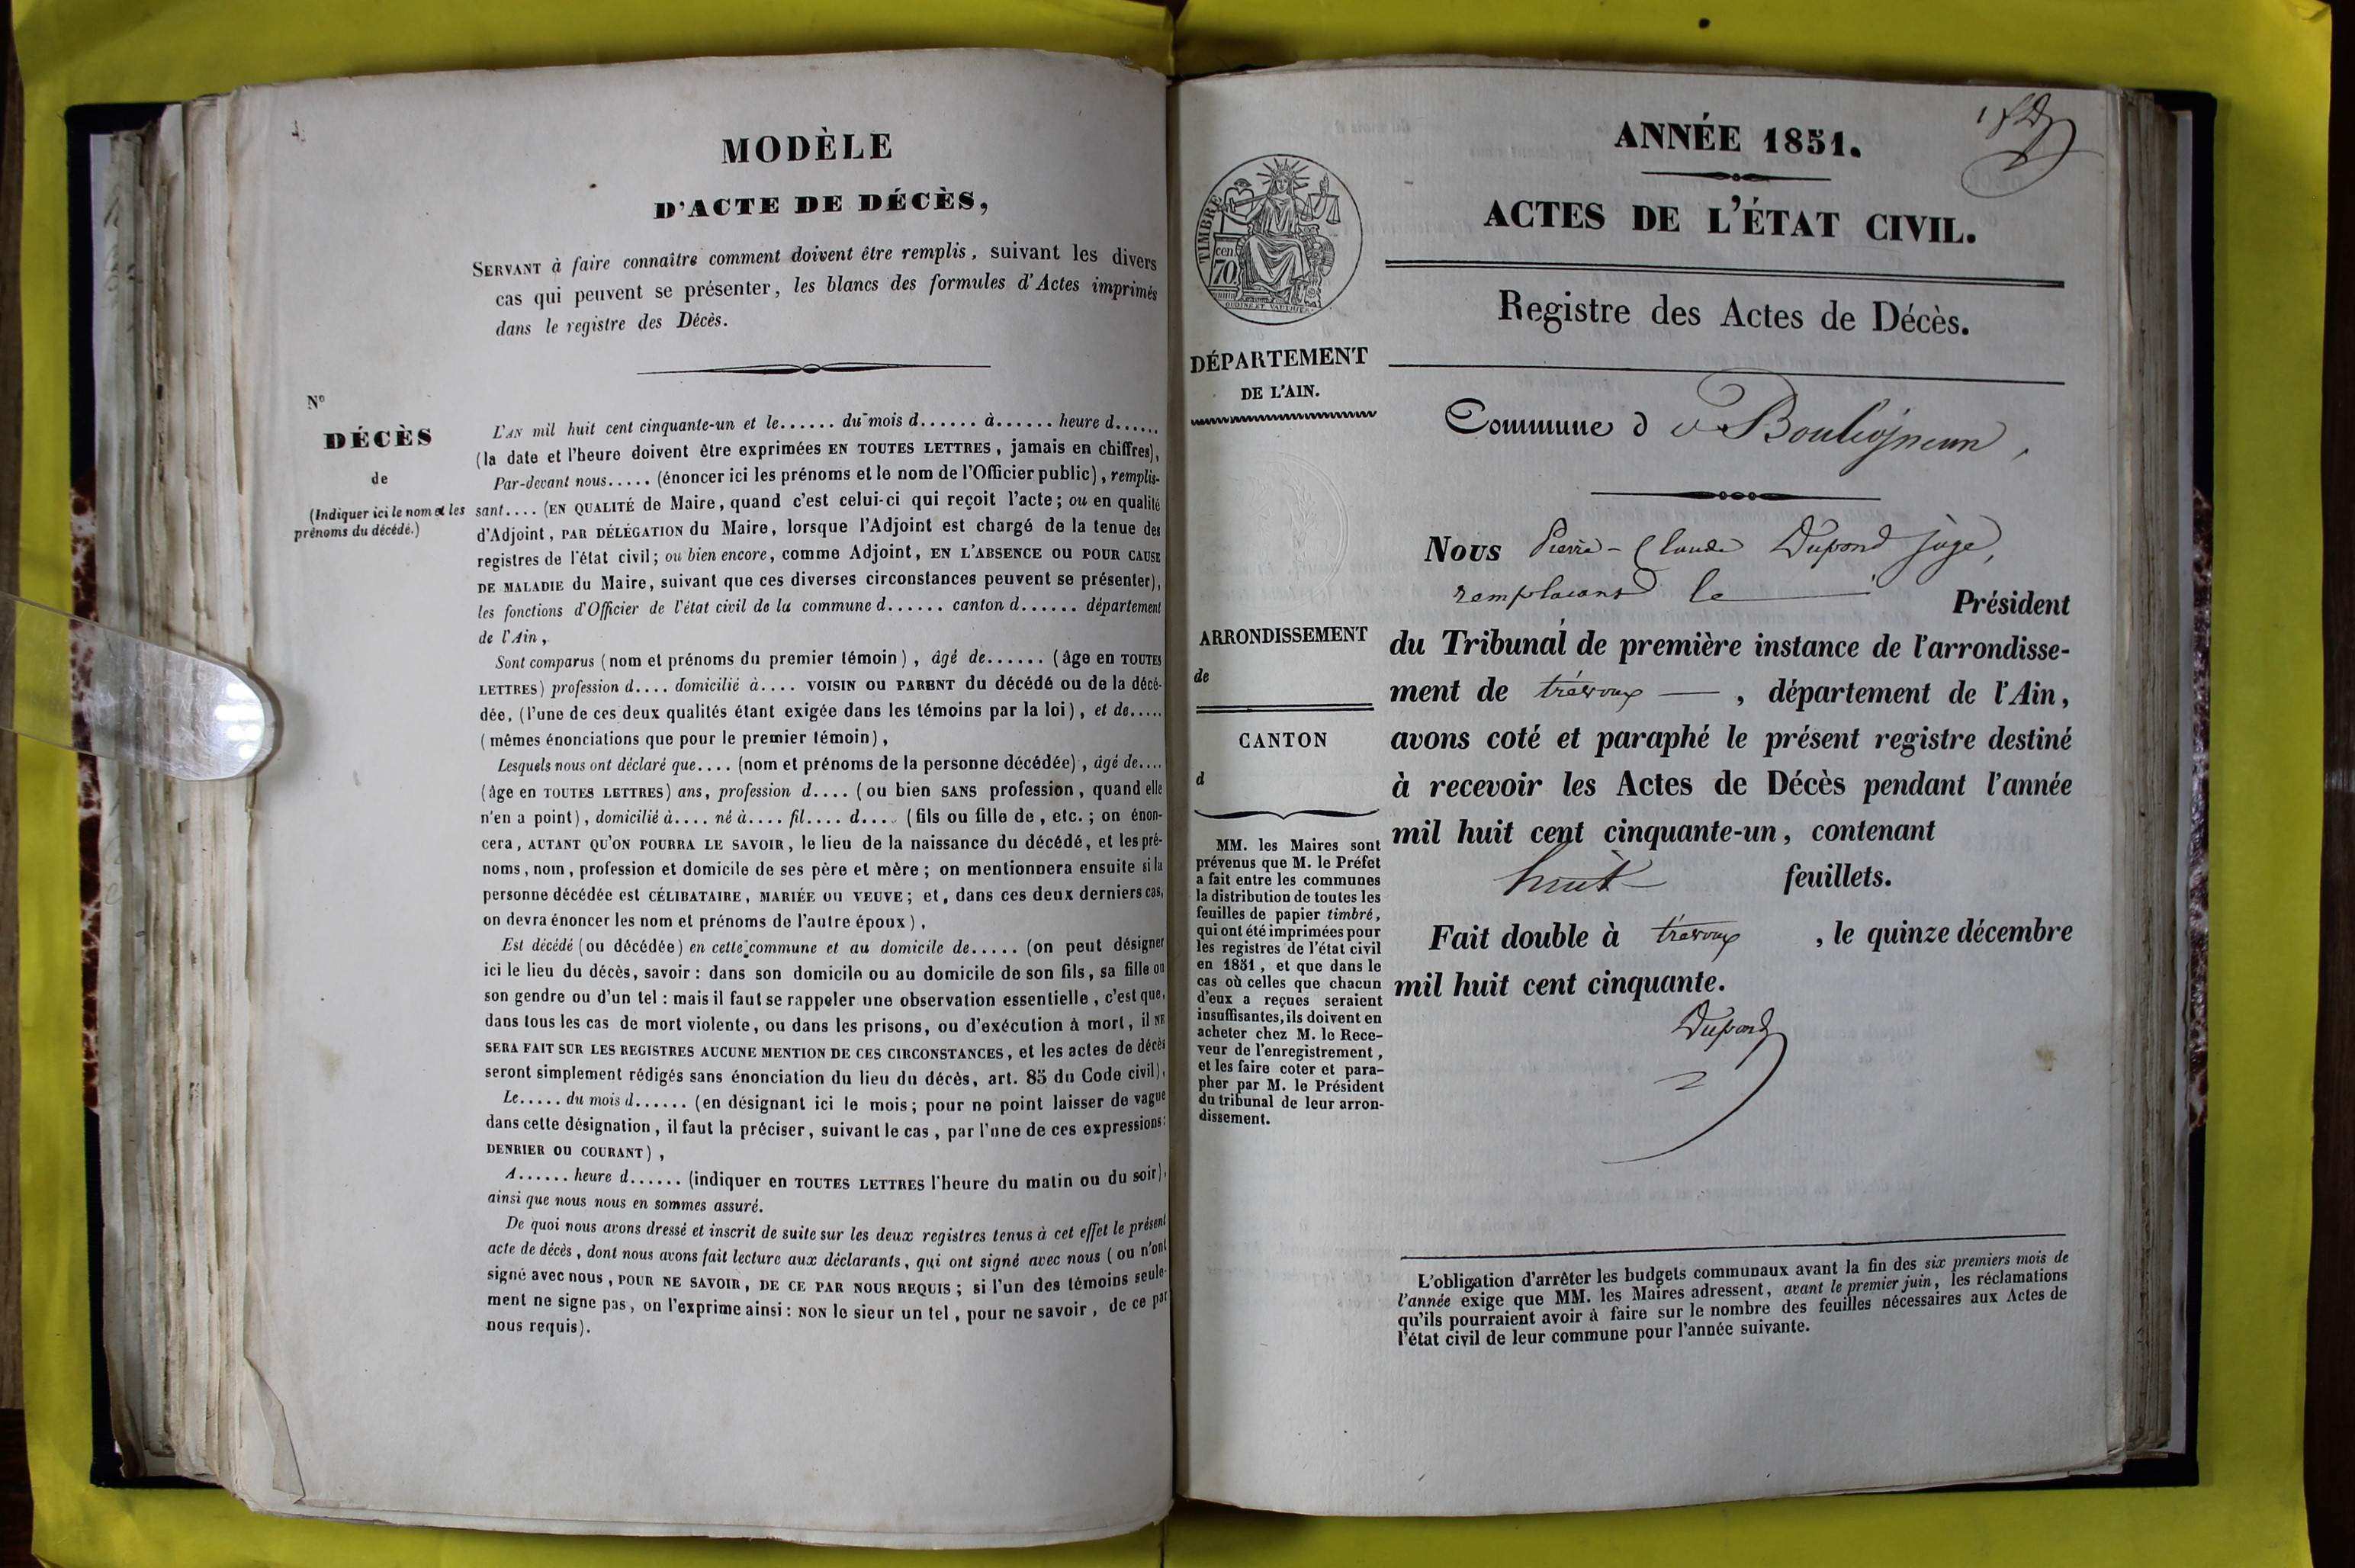 MODÈLE
D'ACTE DE DÉCÈS,
SERVANT à faire connaître comment doivent être remplis, suivant les divers
cas qui peuvent se présenter, les blancs des formules d'Actes imprimés
dans le registre des Décès.
No
DÉCÈS
de
(Indiquer ici le nom et les
prénoms du décédé.)
L'AN mil huit cent cinquante-un et le...... du mois d...... à...... heure d......
(la date et l'heure doivent être exprimées EN TOUTES LETTRES, jamais en chiffres),
Par-devant nous..... (énoncer ici les prénoms et le nom de l'Officier public), remplis-
sant.... (EN QUALITÉ de Maire, quand c'est celui-ci qui reçoit l'acte; ou en qualité
d'Adjoint, PAR DÉLÉGATION du Maire, lorsque l'Adjoint est chargé de la tenue des
registres de l'état civil; ou bien encore, comme Adjoint, EN L'ABSENCE OU POUR CAUSE
DE MALADIE du Maire, suivant que ces diverses circonstances peuvent se présenter),
les fonctions d'Officier de l'état civil de la commune d...... canton d...... département
de l'Ain,
Sont comparus (nom et prénoms du premier témoin), âgé de...... (âge en TOUTES
LETTRES) profession d.... domicilié à.... VOISIN OU PARENT du décédé ou de la décé-
dée, (l'une de ces deux qualités étant exigée dans les témoins par la loi), et de.....
(mêmes énonciations que pour le premier témoin),
Lesquels nous ont déclaré que.... (nom et prénoms de la personne décédée), âgé de....
(âge en TOUTES LETTRES) ans, profession d.... (ou bien SANS profession, quand elle
n'en a point), domicilié à.... né à.... fil.... d.... (fils ou fille de, etc.; on énon-
cera, AUTANT QU'ON POURRA LE SAVOIR, le lieu de la naissance du décédé, et les pré-
noms, nom, profession et domicile de ses père et mère; on mentionnera ensuite si la
personne décédée est CÉLIBATAIRE, MARIÉE OU VEUVE; et, dans ces deux derniers cas,
on devra énoncer les nom et prénoms de l'autre époux),
Est décédé (ou décédée) en cette commune et au domicile de..... (on peut désigner
ici le lieu du décès, savoir: dans son domicile ou au domicile de son fils, sa fille ou
son gendre ou d'un tel: mais il faut se rappeler une observation essentielle, c'est que,
dans tous les cas de mort violente, ou dans les prisons, ou d'exécution à mort, il NE
SERA FAIT SUR LES REGISTRES AUCUNE MENTION DE CES CIRCONSTANCES, et les actes de décès
seront simplement rédigés sans énonciation du lieu du décès, art. 85 du Code civil),
Le..... du mois d...... (en désignant ici le mois; pour ne point laisser de vague
dans cette désignation, il faut la préciser, suivant le cas, par l'une de ces expressions:
DENRIER OU COURANT),
A...... heure d...... (indiquer en TOUTES LETTRES l'heure du matin ou du soir),
ainsi que nous nous en sommes assuré.
De quoi nous avons dressé et inscrit de suite sur les deux registres tenus à cet effet le présent
acte de décès, dont nous avons fait lecture aux déclarants, qui ont signé avec nous (ou n'ont
signé avec nous, POUR NE SAVOIR, DE CE PAR NOUS REQUIS; si l'un des témoins seule-
ment ne signe pas, on l'exprime ainsi: NON le sieur un tel, pour ne savoir, de ce par
nous requis).
ANNÉE 1851.
ACTES DE L'ÉTAT CIVIL.
Registre des Actes de Décès.
TIMBRE
cen
70
DÉPARTEMENT
DE L'AIN.
Commune d
Nous Pierre-Claude Dupond juge,
remplaçant le Président
du Tribunal de première instance de l'arrondisse-
ment de trévoux, département de l'Ain,
avons coté et paraphé le présent registre destiné
à recevoir les Actes de Décès pendant l'année
mil huit cent cinquante-un, contenant
huit feuillets.
Fait double à trévoux, le quinze décembre
mil huit cent cinquante.
Dupond
ARRONDISSEMENT
de
CANTON
d
MM. les Maires sont
prévenus que M. le Préfet
a fait entre les communes
la distribution de toutes les
feuilles de papier timbré,
qui ont été imprimées pour
les registres de l'état civil
en 1851, et que dans le
cas où celles que chacun
d'eux a reçues seraient
insuffisantes, ils doivent en
acheter chez M. le Rece-
veur de l'enregistrement,
et les faire coter et para-
pher par M. le Président
du tribunal de leur arron-
dissement.
L'obligation d'arrêter les budgets communaux avant la fin des six premiers mois de
l'année exige que MM. les Maires adressent, avant le premier juin, les réclamations
qu'ils pourraient avoir à faire sur le nombre des feuilles nécessaires aux Actes de
l'état civil de leur commune pour l'année suivante.